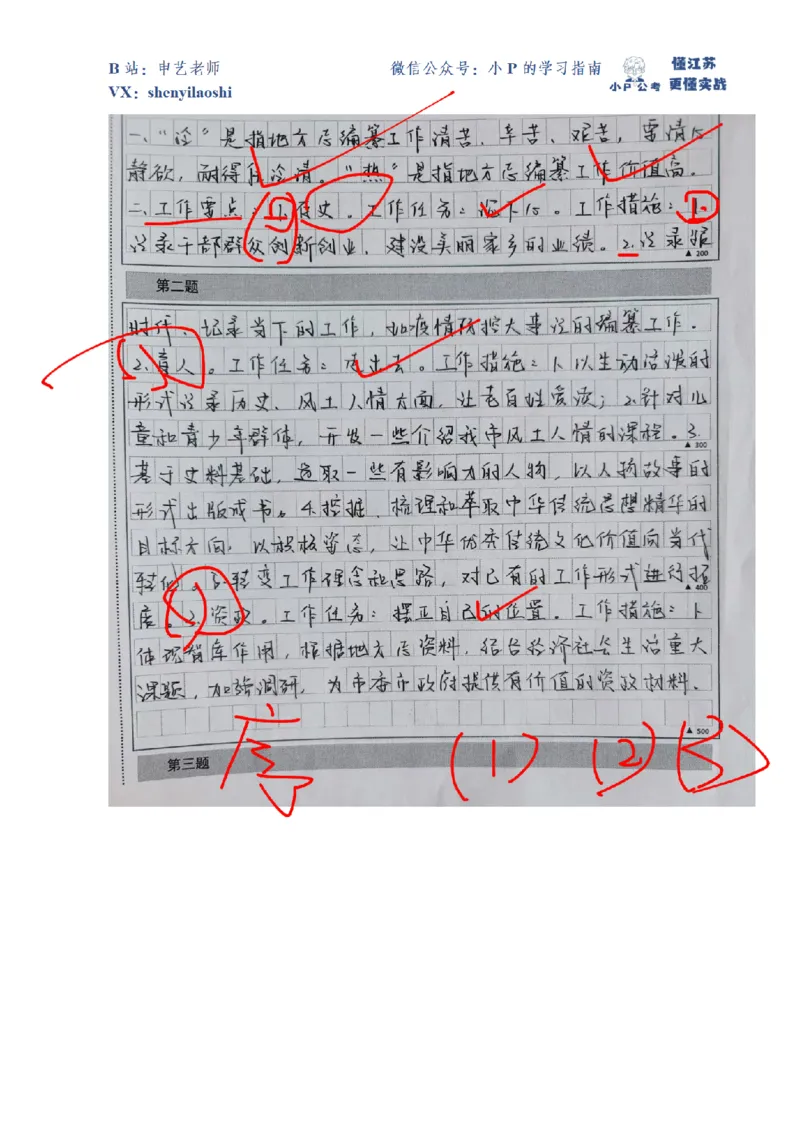 B 站：申艺老师 微信公众号：小 P 的学习指南
VX：shenyilaoshi
小P公考 懂江苏 更懂实战
一、“冷”是指地方志编纂工作清苦、辛苦、艰苦，要清心
静欲，耐得住冷清。“热”是指地方志编纂工作价值高。
二、工作要点：1.存史。工作任务：记下来。工作措施：1.
记录干部群众创新创业，建设美丽家乡的业绩。2.记录跟
▲ 200
第二题
时代、记录当下的工作，如疫情防控大事记的编纂工作。
2.育人。工作任务：走出去。工作措施：1.以生动活泼的
形式记录历史、风土人情方面，让老百姓爱读；2.针对儿
童和青少年群体，开发一些介绍我市风土人情的课程。3.
▲ 300
基于史料基础，选取一些有影响力的人物，以人物故事的
形式出版成书。4.挖掘、梳理和萃取中华传统思想精华的
目标方向，以积极姿态，让中华优秀传统文化价值向当代
转化。5.转变工作理念和思路，对已有的工作形式进行拓
▲ 400
展。3.资政。工作任务：摆正自己的位置。工作措施：1.
体现智库作用，根据地方志资料，结合经济社会生活重大
课题，加强调研，为市委市政府提供有价值的资政材料。
▲ 500
序 (1) (2) (3)
第三题